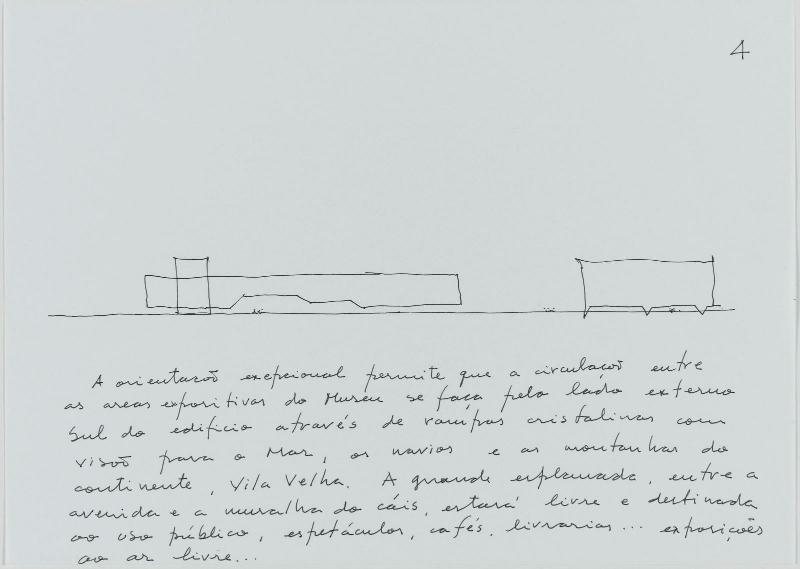 4
A orientação excepcional permite que a circulação entre
as areas expositivas do Museu se faça pelo lado externo
sul do edifício através de rampas cristalinas com
visão para o Mar, os navios e as montanhas do
continente, Vila Velha. A grande esplanada, entre a
avenida e a muralha do cáis, estará livre e destinada
ao uso público, espetáculos, cafés, livrarias... exposições
ao ar livre...